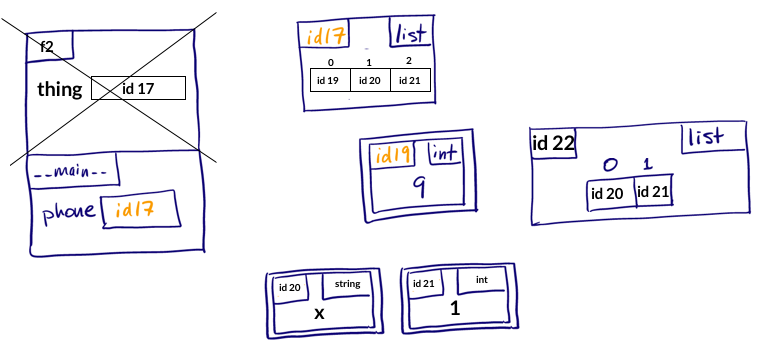 f2
thing id 17
--main--
phone id17
id17 list
0 1 2
id 19 id 20 id 21
id19 int
9
id 22 list
0 1
id 20 id 21
id 20 string
x
id 21 int
1